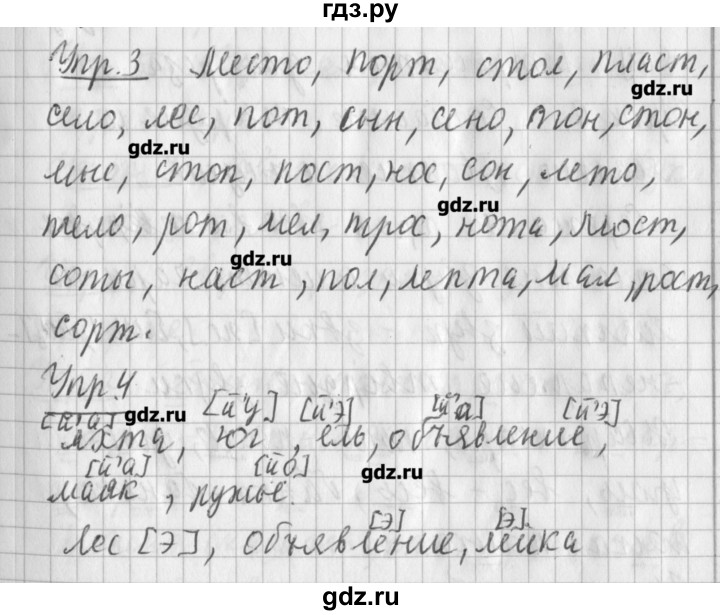 гдз.ру
Упр.3 Место, порт, стол, пласт,
gdz.ru
село, лес, пот, сын, сено, тон, стон,
gdz.ru
мыс, стоп, пост, нос, сон, лето,
gdz.ru
тело, рот, мел, трос, нота, мост,
gdz.ru
соты, наст, пол, лепта, мал, рост,
сорт.
Упр.4
gdz.ru
[й'а] [й'у] [й'э] [й'а] [й'э]
яхта, юг, ель, объявление,
[й'а] [йо]
gdz.ru
маяк, ружьё.
[э] [э]
лес [э], объявление, лейка
gdz.ru gdz.ru